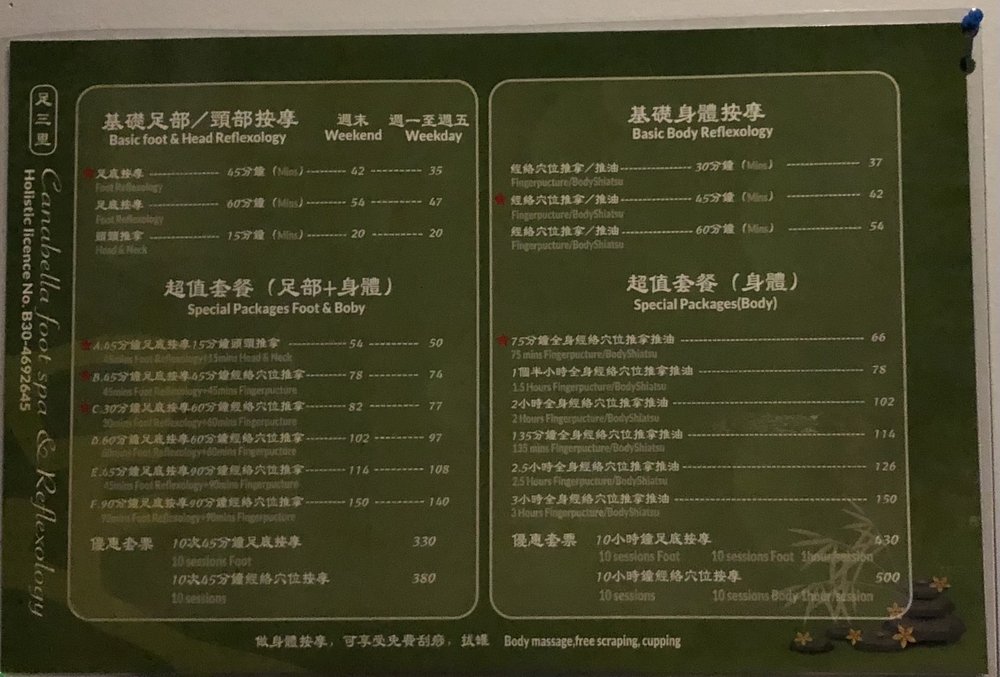 足三里
Canabella foot spa & Reflexology
Holistic licence No. B30-4692645
基礎足部／頸部按摩 週末 週一至週五
Basic foot & Head Reflexology Weekend Weekday
足底按摩 45分鐘 (Mins) 42 35
Foot Reflexology
足底按摩 60分鐘 (Mins) 54 47
Foot Reflexology
頭頸推拿 15分鐘 (Mins) 20 20
Head & Neck
超值套餐（足部+身體）
Special Packages Foot & Boby
A.45分鐘足底按摩15分鐘頭頸推拿 54 50
45mins Foot Reflexology+15mins Head & Neck
B.45分鐘足底按摩45分鐘經絡穴位推拿 78 74
45mins Foot Reflexology+45mins Fingerpucture
C.30分鐘足底按摩60分鐘經絡穴位推拿 82 77
30mins Foot Reflexology+60mins Fingerpucture
D.60分鐘足底按摩60分鐘經絡穴位推拿 102 97
60mins Foot Reflexology+60mins Fingerpucture
E.45分鐘足底按摩90分鐘經絡穴位推拿 114 108
45mins Foot Reflexology+90mins Fingerpucture
F.90分鐘足底按摩90分鐘經絡穴位推拿 150 140
90mins Foot Reflexology+90mins Fingerpucture
優惠套票 10次45分鐘足底按摩 330
10 sessions Foot
10次45分鐘經絡穴位按摩 380
10 sessions
基礎身體按摩
Basic Body Reflexology
經絡穴位推拿／推油 30分鐘 (Mins) 37
Fingerpucture/BodyShiatsu
經絡穴位推拿／推油 45分鐘 (Mins) 42
Fingerpucture/BodyShiatsu
經絡穴位推拿／推油 60分鐘 (Mins) 54
Fingerpucture/BodyShiatsu
超值套餐（身體）
Special Packages(Body)
75分鐘全身經絡穴位推拿推油 66
75 mins Fingerpucture/BodyShiatsu
1個半小時全身經絡穴位推拿推油 78
1.5 Hours Fingerpucture/BodyShiatsu
2小時全身經絡穴位推拿推油 102
2 Hours Fingerpucture/BodyShiatsu
135分鐘全身經絡穴位推拿推油 114
135 mins Fingerpucture/BodyShiatsu
2.5小時全身經絡穴位推拿推油 126
2.5 Hours Fingerpucture/BodyShiatsu
3小時全身經絡穴位推拿推油 150
3 Hours Fingerpucture/BodyShiatsu
優惠套票 10小時鐘足底按摩 430
10 sessions Foot 10 sessions Foot 1hour/session
10小時鐘經絡穴位按摩 500
10 sessions 10 sessions Body 1hour/session
做身體按摩，可享受免費刮痧，拔罐 Body massage,free scraping, cupping